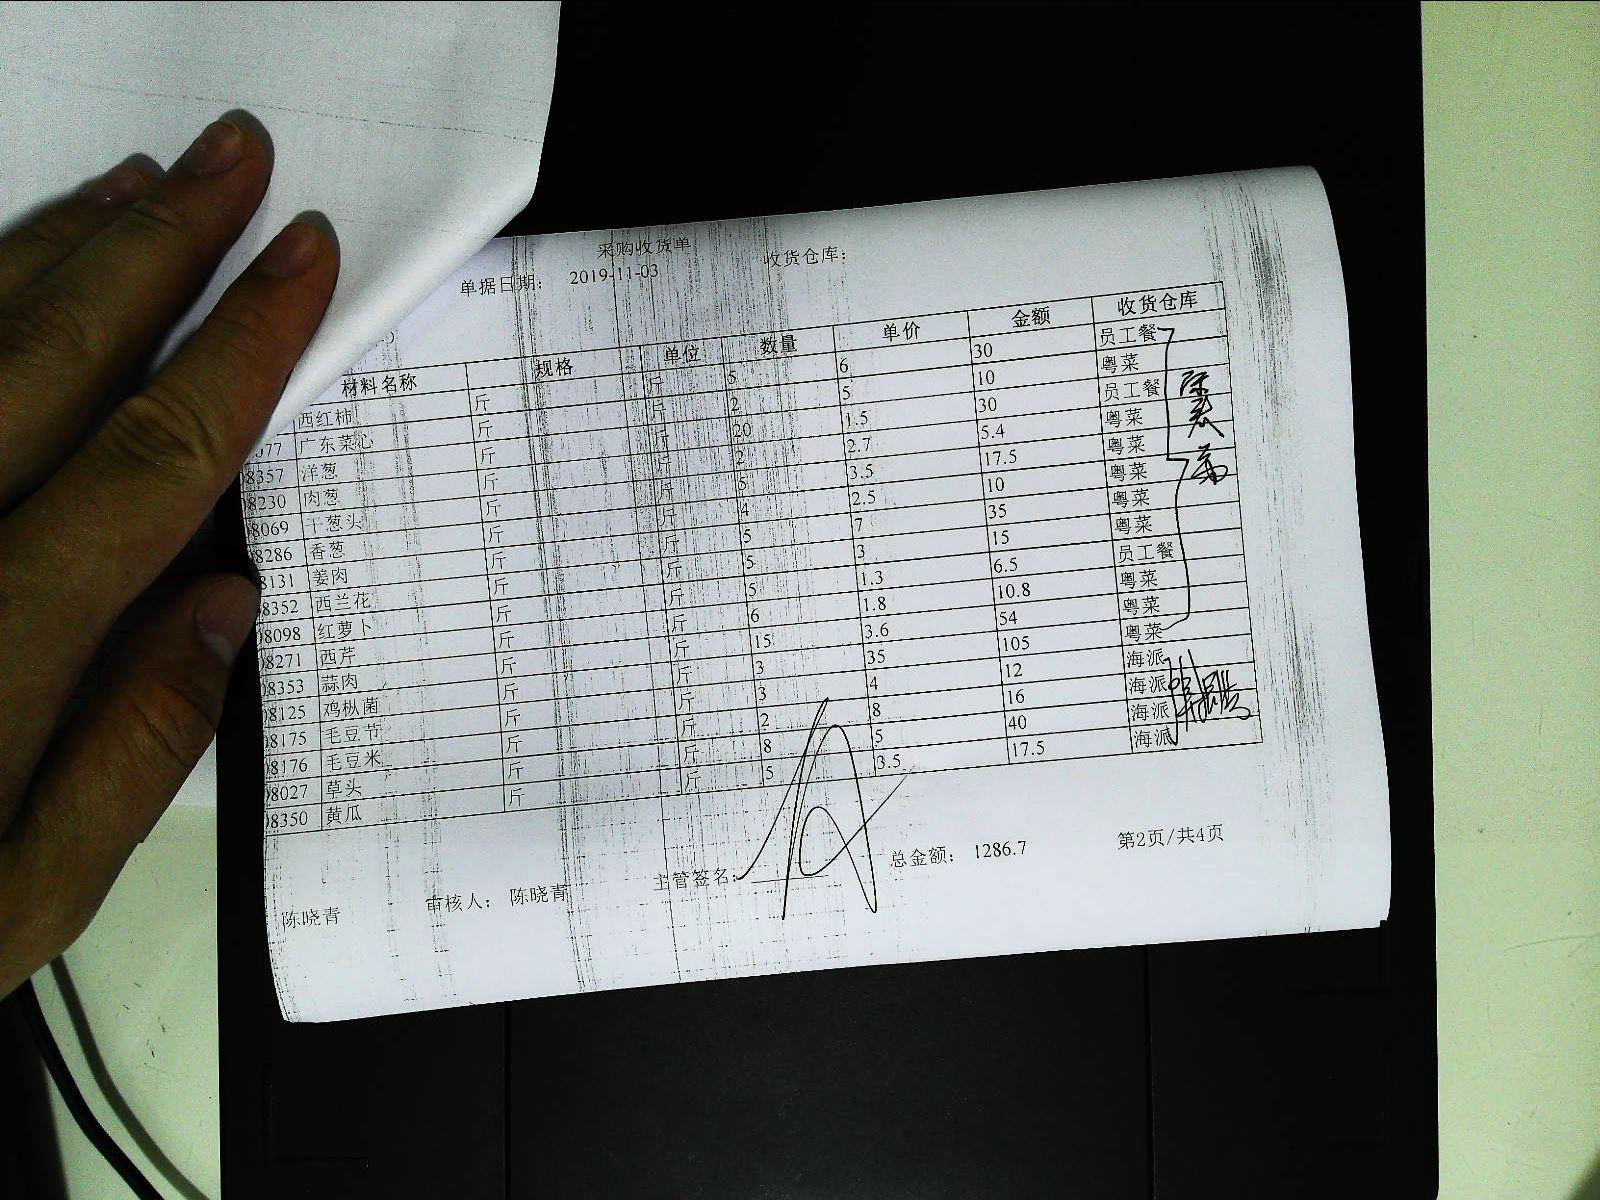 采购收货单
单据日期： 2019-11-03 收货仓库：
材料名称 规格 单位 数量 单价 金额 收货仓库
西红柿 斤 斤 5 6 30 员工餐
077 广东菜心 斤 斤 2 5 10 粤菜
08357 洋葱 斤 斤 20 1.5 30 员工餐
08230 肉葱 斤 斤 2 2.7 5.4 粤菜
08069 干葱头 斤 斤 5 3.5 17.5 粤菜
08286 香葱 斤 斤 4 2.5 10 粤菜
08131 姜肉 斤 斤 5 7 35 粤菜
08352 西兰花 斤 斤 5 3 15 粤菜
08098 红萝卜 斤 斤 5 1.3 6.5 员工餐
08271 西芹 斤 斤 6 1.8 10.8 粤菜
08353 蒜肉 斤 斤 15 3.6 54 粤菜
08125 鸡枞菌 斤 斤 3 35 105 粤菜
08175 毛豆节 斤 斤 3 4 12 海派
08176 毛豆米 斤 斤 2 8 16 海派
08027 草头 斤 斤 8 5 40 海派
08350 黄瓜 斤 斤 5 3.5 17.5 海派
陈晓青 审核人： 陈晓青 主管签名： 总金额： 1286.7 第2页/共4页